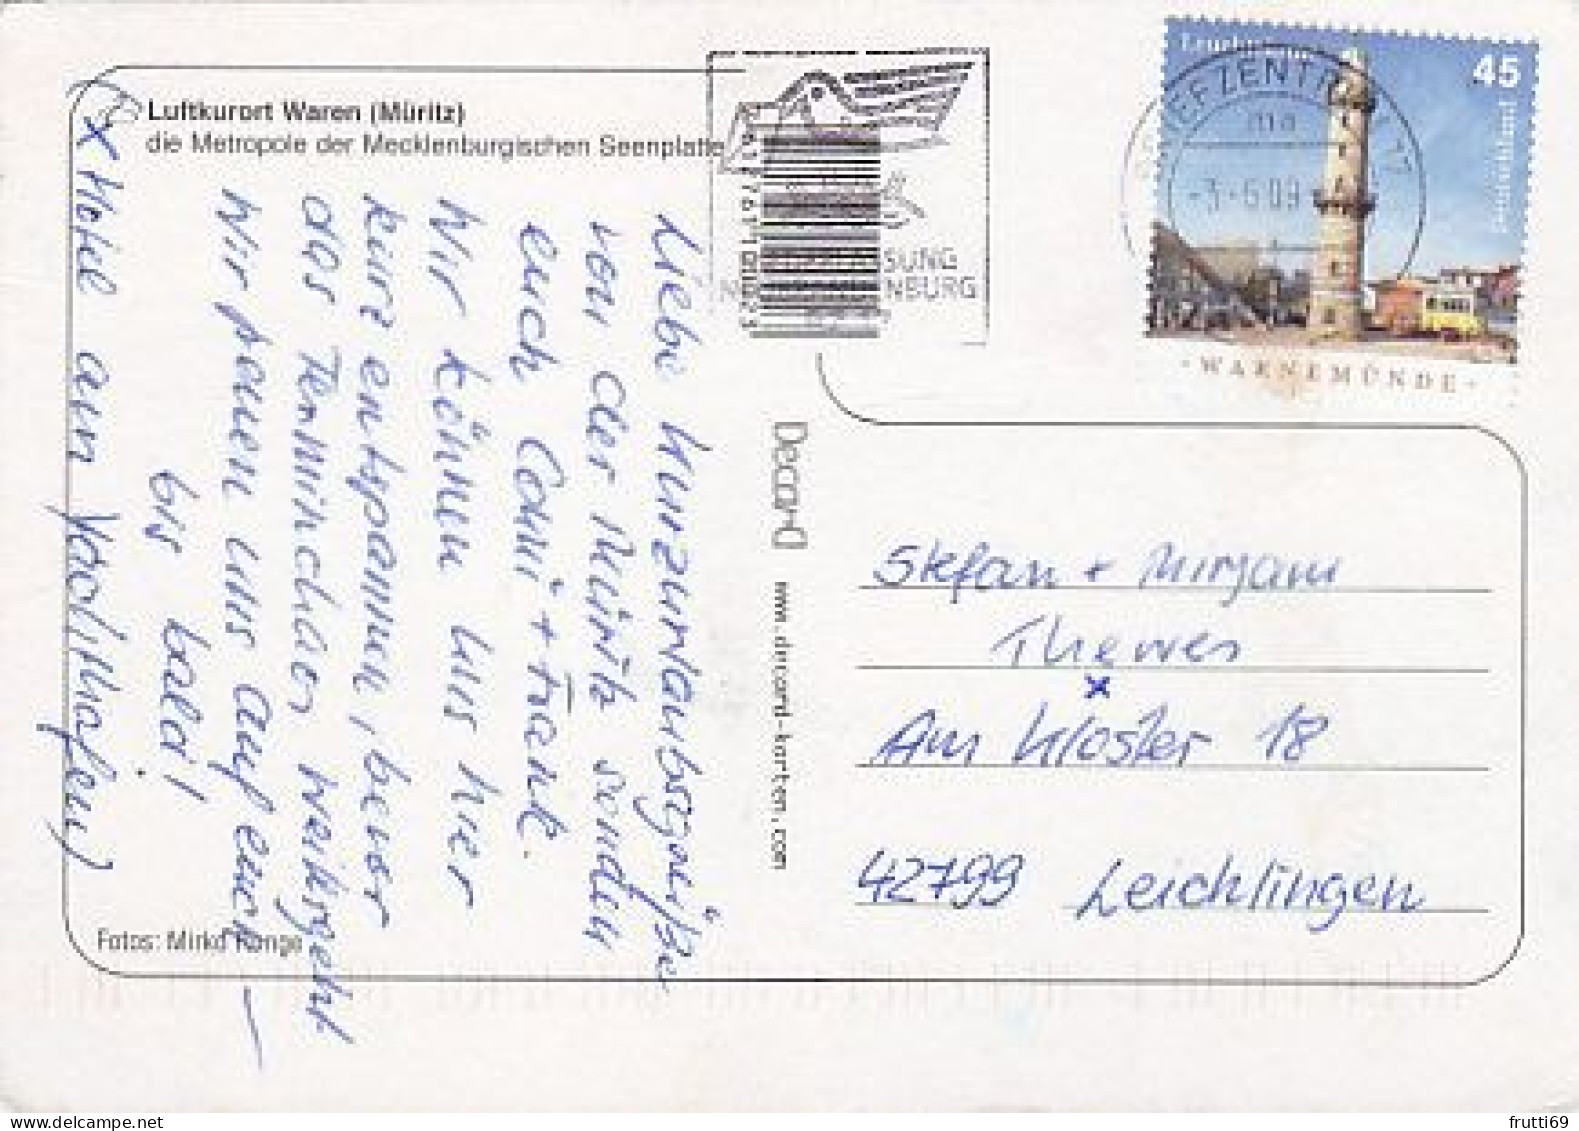 Luftkurort Waren (Müritz)
die Metropole der Mecklenburgischen Seenplatte
Liebe Kurzurlaubsgrüße
von der Müritz senden
euch Conni + Frank.
Wir können uns hier
kurz entspannen, bevor
das Terminchaos weitergeht
Wir freuen uns auf euch –
bis bald!
(x Hotel am Yachthafen)
Fotos: Mirko Runge
DecarD www.decard-karten.com
SUNG
NBURG
BRIEFZENTR
-3.-6.09
Leuchttürme
45
Deutschland
· WARNEMÜNDE ·
Stefan + Mirjam
Thewes
x
Am Kloster 18
42799 Leichlingen
frutti69